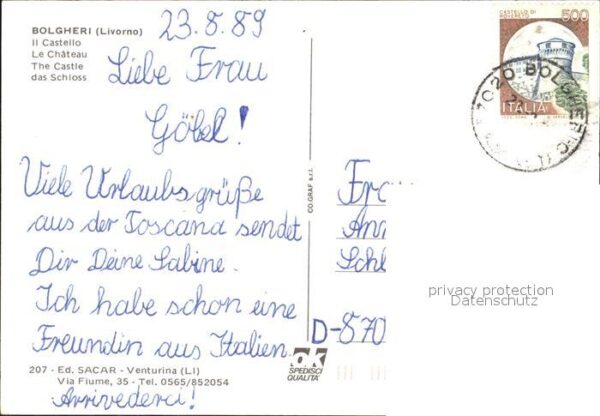 BOLGHERI (Livorno)
Il Castello
Le Château
The Castle
das Schloss
23.8.89
Liebe Frau
Göbel!
Viele Urlaubsgrüße
aus der Toscana sendet
Dir Deine Sabine.
Ich habe schon eine
Freundin aus Italien.
Arrivederci!
207 - Ed. SACAR - Venturina (LI)
Via Fiume, 35 - Tel. 0565/852054
CO.GRAF s.r.l.
ok
SPEDISCI
QUALITÀ
CASTELLO DI
ROVERETO
500
ITALIA
BOLGHERI
Fra
Ann
Schl
D-870
privacy protection
Datenschutz